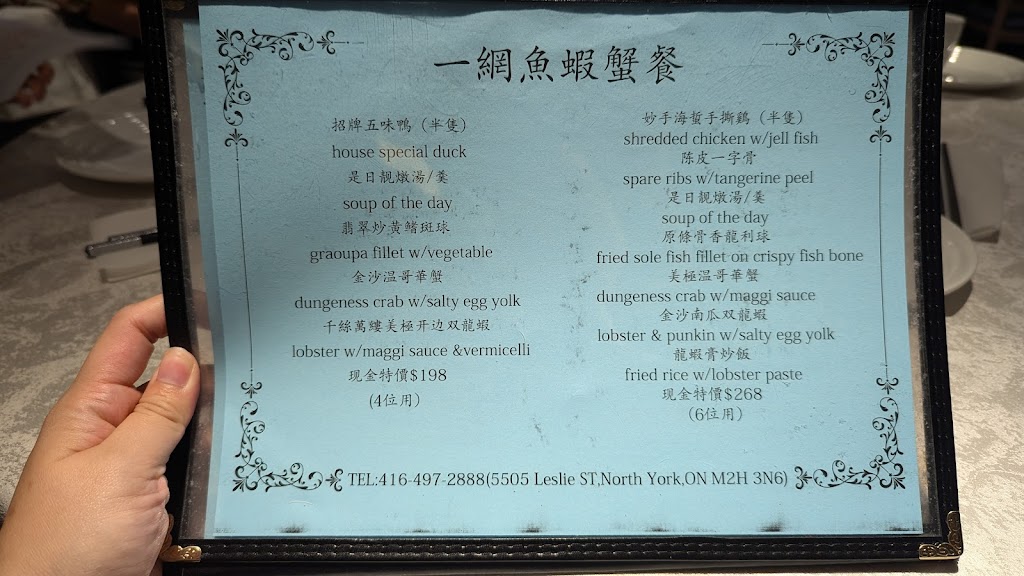 一網魚蝦蟹餐
招牌五味鴨（半隻）
house special duck
是日靚燉湯/羹
soup of the day
翡翠炒黃鰭斑球
graoupa fillet w/vegetable
金沙温哥華蟹
dungeness crab w/salty egg yolk
千絲萬縷美極开边双龍蝦
lobster w/maggi sauce &vermicelli
现金特價$198
(4位用）
妙手海蜇手撕鷄（半隻）
shredded chicken w/jell fish
陈皮一字骨
spare ribs w/tangerine peel
是日靚燉湯/羹
soup of the day
原條骨香龍利球
fried sole fish fillet on crispy fish bone
美極温哥華蟹
dungeness crab w/maggi sauce
金沙南瓜双龍蝦
lobster & punkin w/salty egg yolk
龍蝦膏炒飯
fried rice w/lobster paste
现金特價$268
（6位用）
TEL:416-497-2888(5505 Leslie ST,North York,ON M2H 3N6)